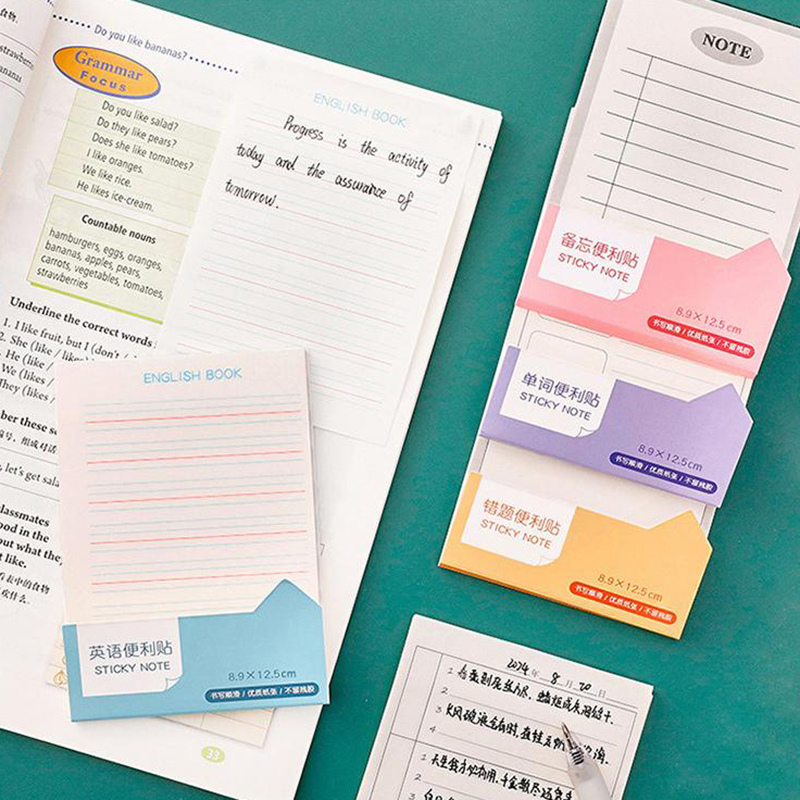 食物.
strawberries
ananas
Do you like bananas?
Grammar
Focus
Do you like salad?
Do they like pears?
Does she like tomatoes?
I like oranges.
We like rice.
He likes ice-cream.
Countable nouns
hamburgers, eggs, oranges,
bananas, apples, pears,
carrots, vegetables, tomatoes,
strawberries
Underline the correct words
1. I like fruit, but I (don't /
2. She (like / likes)
He (like /
We (likes /
They (likes
ber these se
编号, 组成对话
, let's get salad
lassmates
ood in the
out what they
t like.
看表中的食物
喜欢什么.
33
ENGLISH BOOK
Progress is the activity of
today and the assurance of
tomorrow.
ENGLISH BOOK
英语便利贴
STICKY NOTE
8.9×12.5cm
书写顺滑 / 优质纸张 / 不留残胶
NOTE
备忘便利贴
STICKY NOTE
8.9×12.5cm
书写顺滑 / 优质纸张 / 不留残胶
单词便利贴
STICKY NOTE
8.9×12.5cm
书写顺滑 / 优质纸张 / 不留残胶
错题便利贴
STICKY NOTE
8.9×12.5cm
书写顺滑 / 优质纸张 / 不留残胶
2024年 8月 20日
1 春蚕到死丝方尽, 蜡炬成灰泪始干.
2
3 长风破浪会有时, 直挂云帆济沧海.
4
1 天生我才必有用, 千金散尽还复来
2